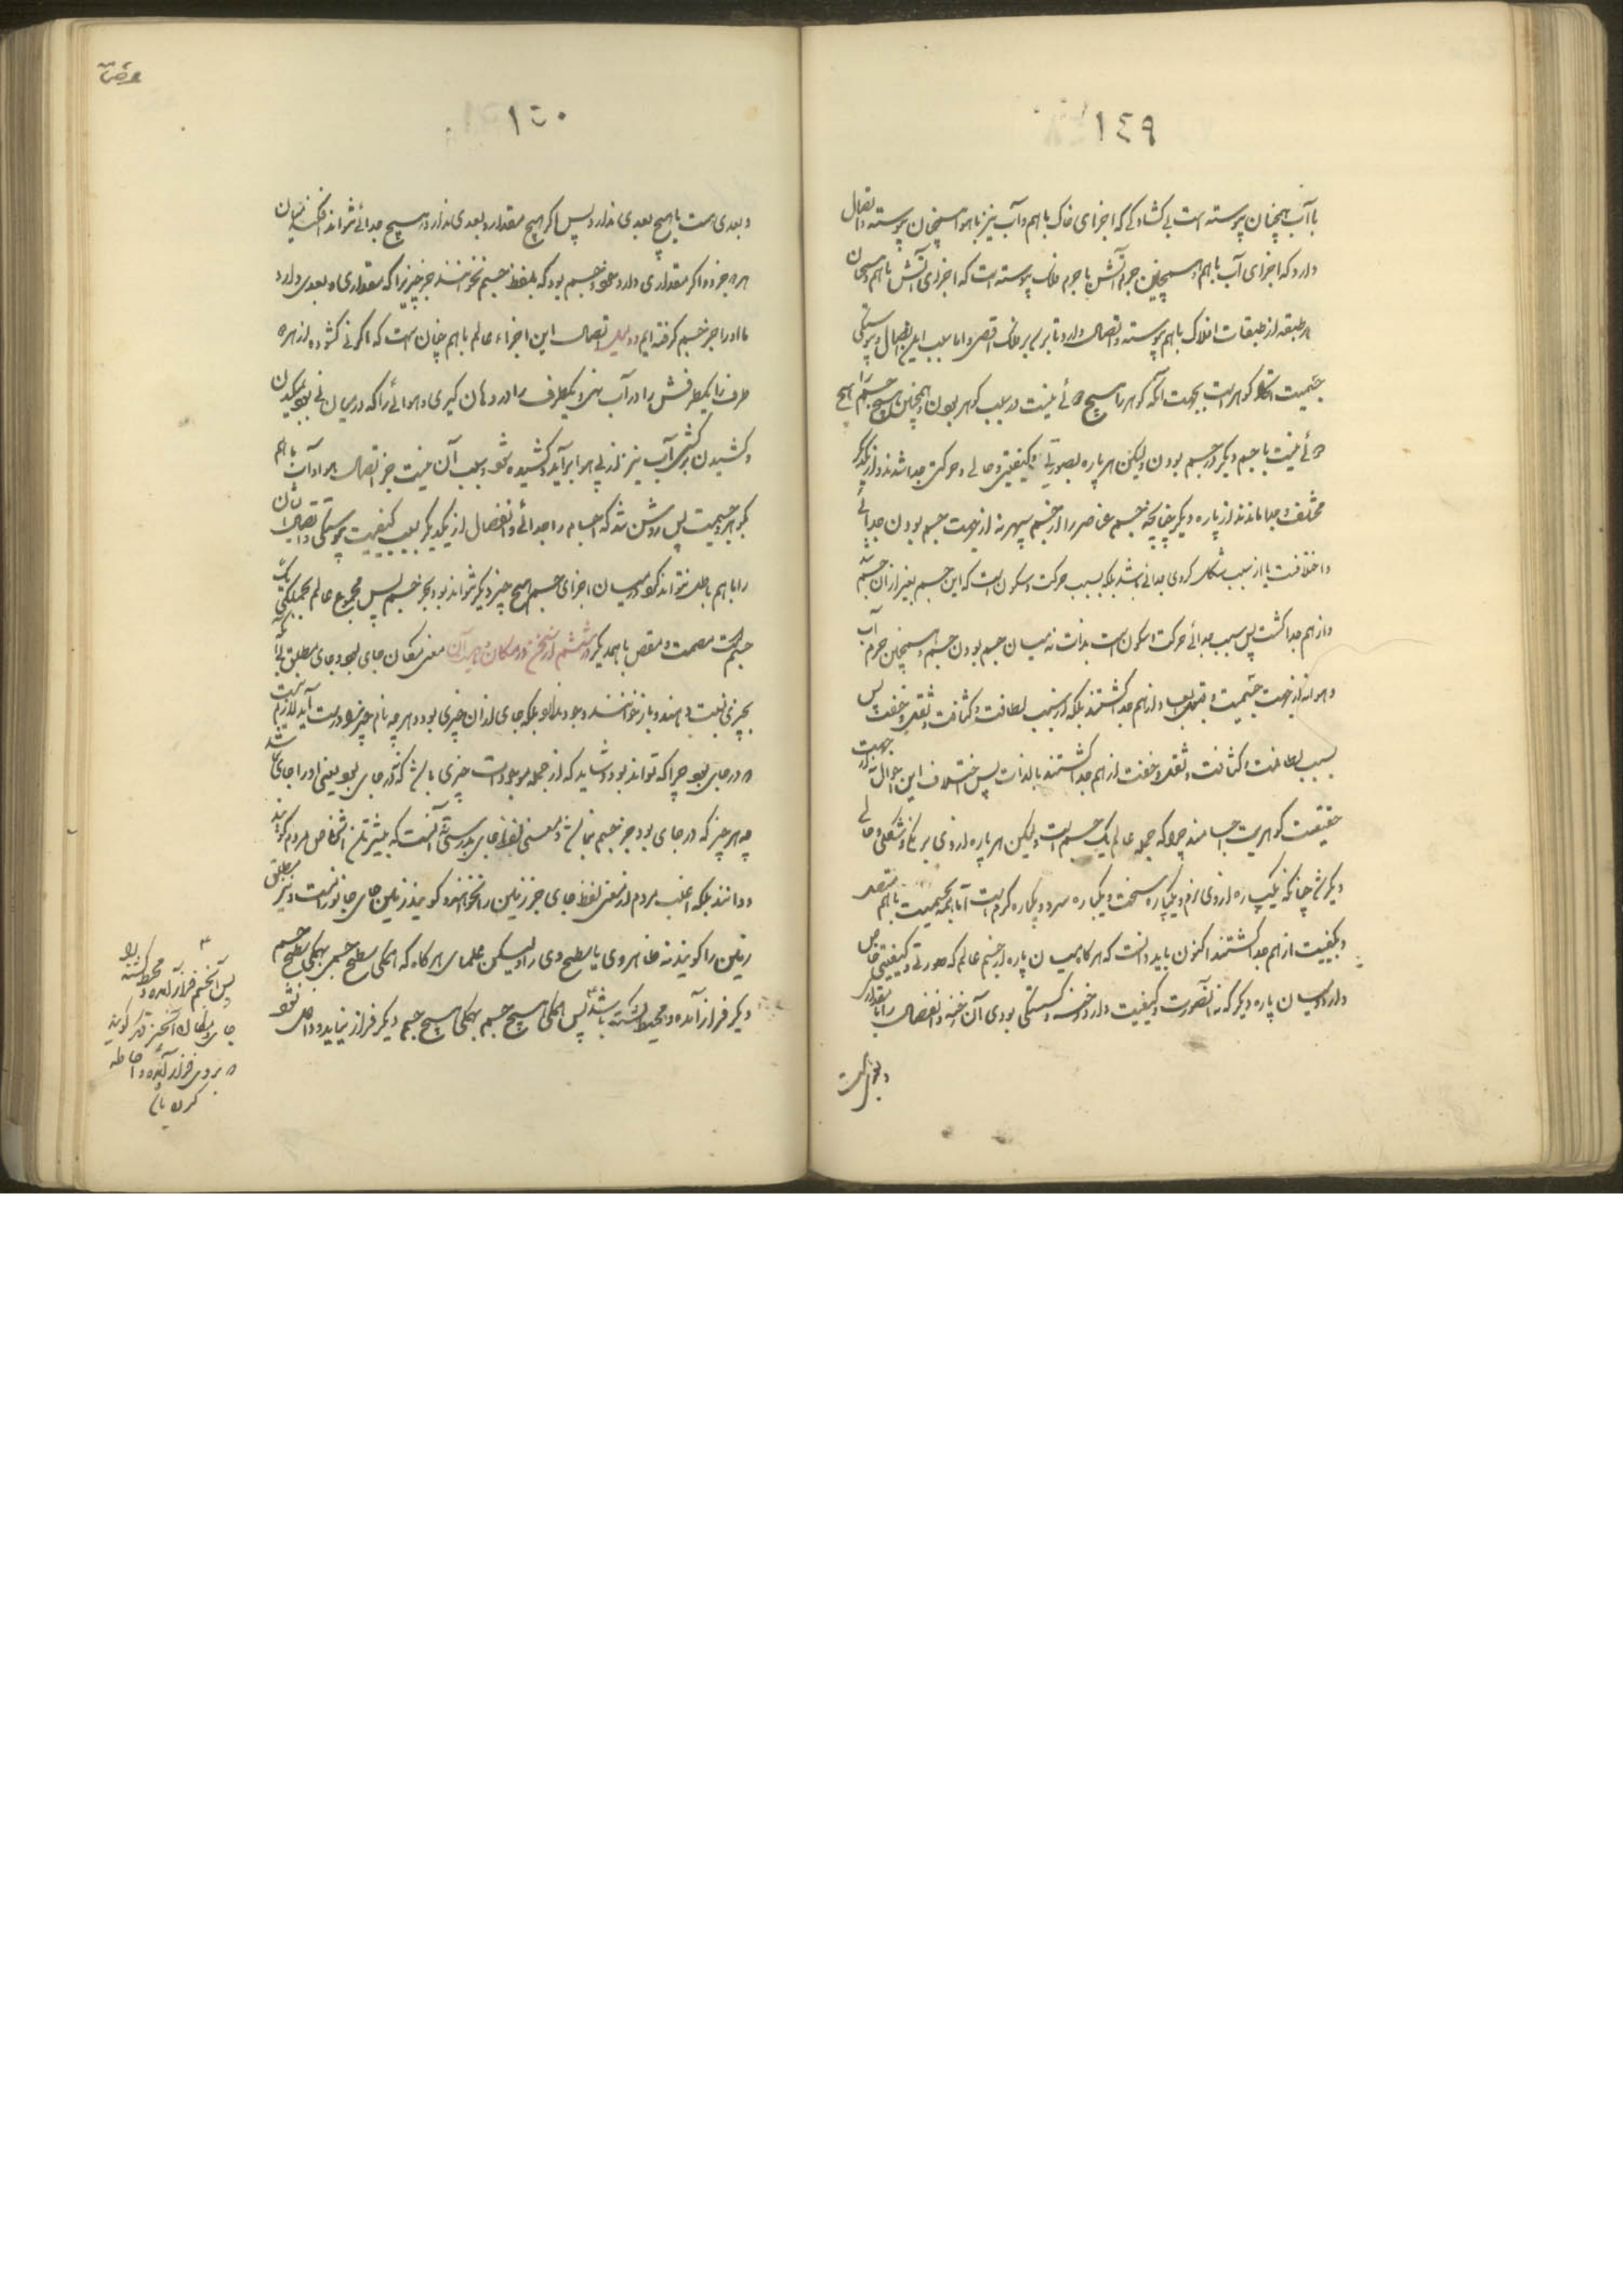 ١٤٩
با آب همچنان پیوسته است بی کشادگی که اجزای خاک با هم و آب نیز با هوا همچنان پیوسته و اتصال
دارد که اجزای آب با هم و همچنین جرم آتش با جرم فلک پیوسته است که اجزای آتش با هم و همچنان
هر طبقه از طبقات افلاک با هم پیوسته و اتصال دارد تا برسد بر فلک اقصی و اما سبب این اتصال و پیوستگی
جسمیت و گوهریت بجهت آنکه گوهر را هیچ جدائی نیست در سبب گوهر بودن و همچنین هیچ جسم را هیچ
جدائی نیست با جسم دیگر در جسم بودن ولیکن هر پاره بصورتی و کیفیتی و حالی و حرکتی جدا شدند و از یکدیگر
مختلف و جدا ماندند از پاره دیگر چنانچه جسم عناصر را از جسم سپهر نه از جهت جسم بودن جدائی
و اختلافست یا از سبب شکل کروی جدائی باشد بلکه بسبب حرکت و سکون است که این جسم بغیر از آن جسم شد
و از هم جدا گشت پس سبب جدائی حرکت و سکون است بذات نه میان جسم بودن جسم و همچنین جرم آب
و هوا نه از جهت جسمیت و از هم جدا گشتند بلکه از سبب لطافت و کثافت و ثقل و خفت پس
بسبب لطافت و کثافت و ثقل و خفت از هم جدا گشتند بالذات پس اختلاف این احوال نه از جهت
حقیقت گوهریت اجسامند چرا که جمله عالم یک جسم است ولیکن هر پاره از وی برنگی و شکلی و حالی
دیگر شد چنانکه یکپاره از وی نرم و یکپاره سخت و یکپاره سرد و یکپاره گرم است اما بجسمیت با هم متصل
و بکیفیت از هم جدا گشتند اکنون باید دانست که هر گاه میان پاره از جسم عالم که صورتی و کیفیتی خاص
دارد و میان پاره دیگر که نه آن صورت و کیفیت دارد رخنه و گسستگی بودی آن رخنه و انفصال را یا مقدار
و بعدی است
١٥٠
و بعدی هست یا هیچ بعدی ندارد پس اگر هیچ مقدار و بعدی ندارد هیچ جدائی نتواند افکند میان
هر دو جزو و اگر مقداری دارد و بعد جسم بود که بلفظ جسم نخوانند جز چیزیرا که مقداری و بعدی دارد
ما او را جز جسم گرفته ایم و اتصال این اجزاء عالم با هم چنان است که اگر نی گشوده از هر دو
طرف را یکطرفش را در آب نهی و یکطرف را در دهان گیری و هوائی را که در میان نی بود بمکیدن
و کشیدن برکشی آب نیز از پی هوا برآید و کشیده شود و سبب آن نیست جز اتصال هوا و آب با هم
بگوهر و جسمیت پس روشن شد که اجسام را جدائی و انفصال از یکدیگر بسبب کیفیت پیوستگی و اتصال شان
را با هم باطل نتواند کرد و در میان اجزای جسم هیچ چیز دیگر نتواند بود بجز جسم پس مجموع عالم بجملگی یک
جسم است مصمت و متصل با همدیگر در ششم از سخن در مکان و جز آن معنی مکان جای بود و جای مطلق بی آنکه
بچیزی نسبت دهند و باز خوانند وجود ندارد بلکه جای از آن چیزی بود و هر چه نام چیز بدو درست آید لازم نیست
که در جای بود چرا که تواند بود و شاید که از جمله موجودات چیزی باشد که نه در جای بود یعنی او را جای نباشد
چه هر چیز که در جای بود جز جسم نباشد و معنی لفظ جای بدرستی آنست که بیشترین اشخاص مردم گویند
و دانند بلکه اغلب مردم از معنی لفظ جای جز زمین را نخواهند و گویند زمین جای جانور است و نیز مطلق
زمین را گویند نه ظاهر وی یا سطح وی را ولیکن علمای هر گاه که همگی سطح جسمی بهمگی سطح جسم
دیگر فراز آمده و محیط گشته باشد پس همگی هیچ جسم بهمگی هیچ جسم دیگر فراز نیاید و داخل نشود
پس آن جسم فراز آمده و محیط گشته را
جای و مکان آن چیز دیگر گویند
که بروی فراز آمده و احاطه
کرده باشد